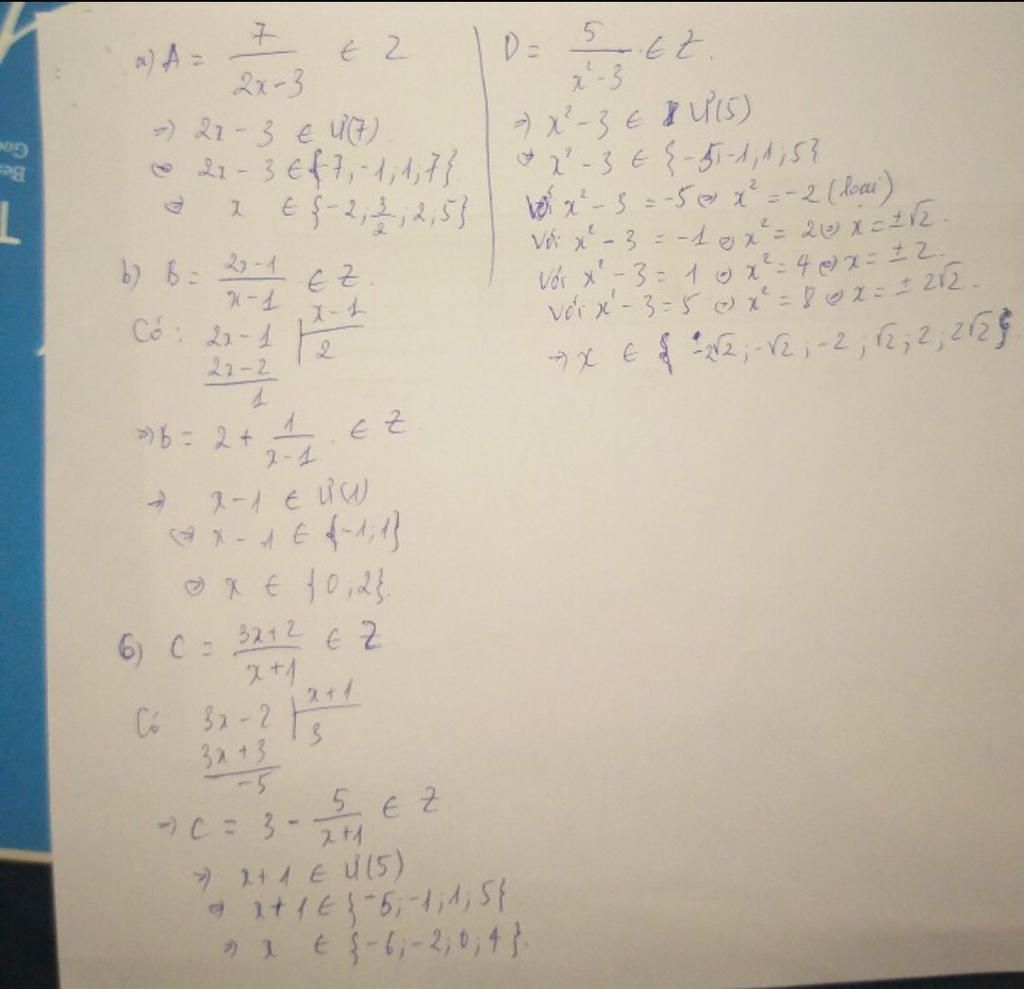 a) A = 7/(2x-3) ∈ Z
=> 2x - 3 ∈ Ư(7)
<=> 2x - 3 ∈ {-7; -1; 1; 7}
<=> x ∈ {-2; 3/2; 2; 5}
b) B = (2x-1)/(x-1) ∈ Z.
Có: 2x-1 | x-1
2x-2 | 2
1
=> B = 2 + 1/(x-1) ∈ Z.
=> x-1 ∈ Ư(1)
<=> x - 1 ∈ {-1; 1}
<=> x ∈ {0; 2}.
6) C = (3x+2)/(x+1) ∈ Z
Có 3x-2 | x+1
3x+3 | 3
-5
=> C = 3 - 5/(x+1) ∈ Z
=> x+1 ∈ Ư(5)
<=> x+1 ∈ {-5; -1; 1; 5}
=> x ∈ {-6; -2; 0; 4}.
D = 5/(x²-3) ∈ Z.
=> x² - 3 ∈ Ư(5)
<=> x² - 3 ∈ {-5; -1; 1; 5}
Với x² - 3 = -5 <=> x² = -2 (loại)
Với x² - 3 = -1 <=> x² = 2 <=> x = ±√2.
Với x² - 3 = 1 <=> x² = 4 <=> x = ± 2.
Với x² - 3 = 5 <=> x² = 8 <=> x = ± 2√2.
=> x ∈ {-2√2; -√2; -2; √2; 2; 2√2}